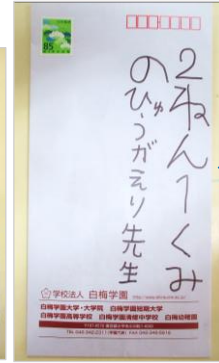 85
2ねん1くみ
のひゅうがえり先生
学校法人 白梅学園
白梅学園大学・大学院 白梅学園短期大学
白梅学園高等学校 白梅学園清修中学校 白梅幼稚園